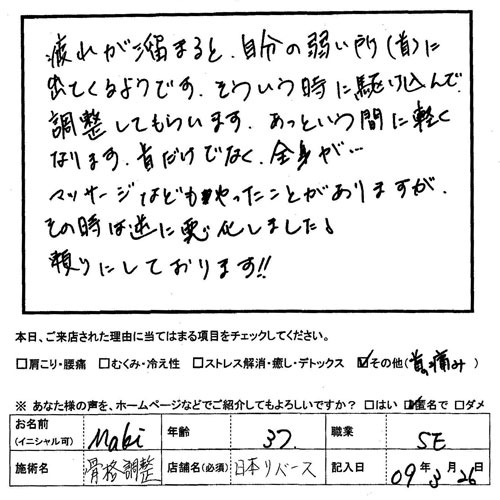 疲れが溜まると、自分の弱い所(首)に
出てくるようです。そういう時に駆け込んで
調整してもらいます。あっという間に軽く
なります。首だけでなく、全身が…
マッサージなどもやったことがありますが、
その時は逆に悪化しました!
頼りにしております!!
本日、ご来店された理由に当てはまる項目をチェックしてください。
□肩こり・腰痛 □むくみ・冷え性 □ストレス解消・癒し・デトックス ☑その他(首痛み)
※ あなた様の声を、ホームページなどでご紹介してもよろしいですか? □はい ☑匿名で □ダメ
お名前(イニシャル可) Maki 年齢 37 職業 SE
施術名 骨格調整 店舗名(必須) 日本リバース 記入日 09年3月26日